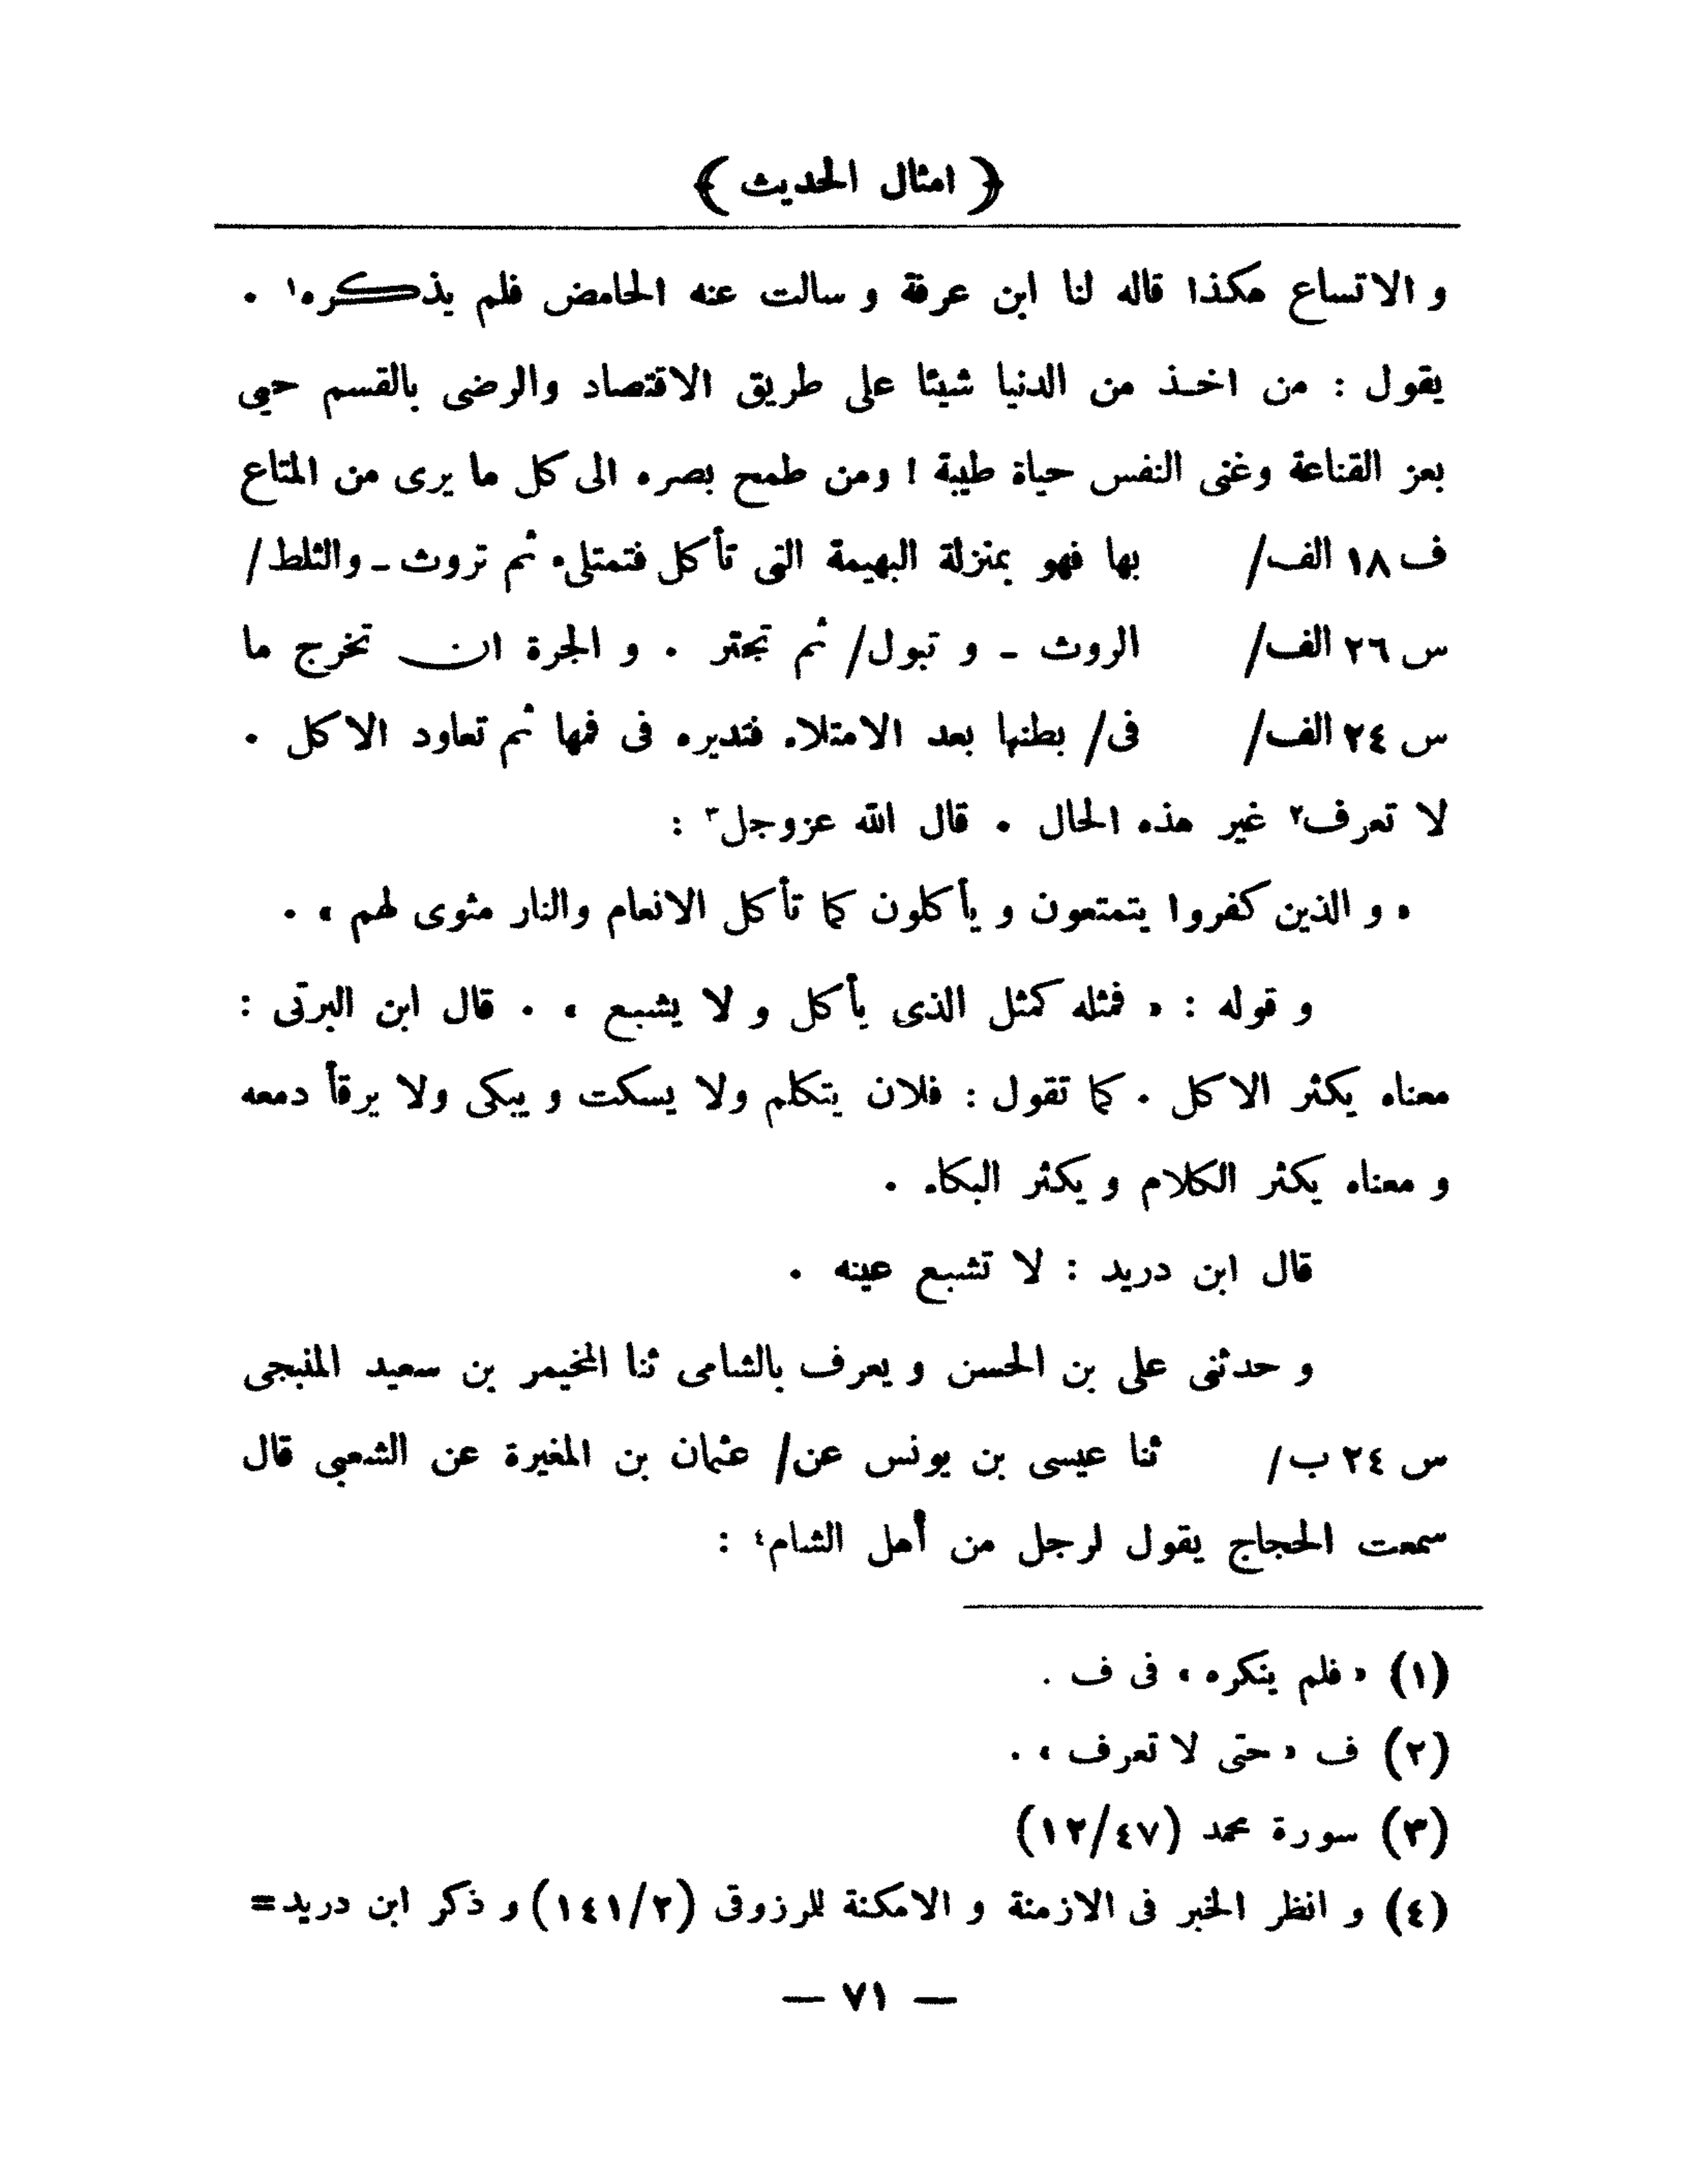 ﴿ امثال الحديث ﴾
و الاتساع هكذا قاله لنا ابن عرفة و سالت عنه الحامض فلم يذكره١ .
يقول : من اخذ من الدنيا شيئا على طريق الاقتصاد والرضى بالقسم حيى
بعز القناعة وغنى النفس حياة طيبة ! ومن طمح بصره الى كل ما يرى من المتاع
ف ١٨ الف/ بها فهو بمنزلة البهيمة التى تأكل فتمتلىء ثم تروث ـ والثلط/
س ٢٦ الف/ الروث ـ و تبول/ ثم تجتر . و الجرة ان تخرج ما
س ٢٤ الف/ فى/ بطنها بعد الامتلاء فتديره فى فمها ثم تعاود الاكل .
لا تعرف٢ غير هذه الحال . قال الله عزوجل٣ :
« و الذين كفروا يتمتعون و يأكلون كما تأكل الانعام والنار مثوى لهم » .
و قوله : « فمثله كمثل الذى يأكل و لا يشبع » . قال ابن البرتى :
معناه يكثر الاكل . كما تقول : فلان يتكلم ولا يسكت و يبكى ولا يرقأ دمعه
و معناه يكثر الكلام و يكثر البكاء .
قال ابن دريد : لا تشبع عينه .
و حدثنى على بن الحسن و يعرف بالشامى ثنا المخيمر بن سعيد المنبجى
س ٢٤ ب/ ثنا عيسى بن يونس عن/ عثمان بن المغيرة عن الشعبي قال
سمعت الحجاج يقول لرجل من أهل الشام٤ :
(١) « فلم ينكره » فى ف .
(٢) ف « حتى لا تعرف » .
(٣) سورة محمد (١٢/٤٧)
(٤) و انظر الخبر فى الازمنة و الامكنة للرزوقى (١٤١/٢) و ذكر ابن دريد=
— ٧١ —